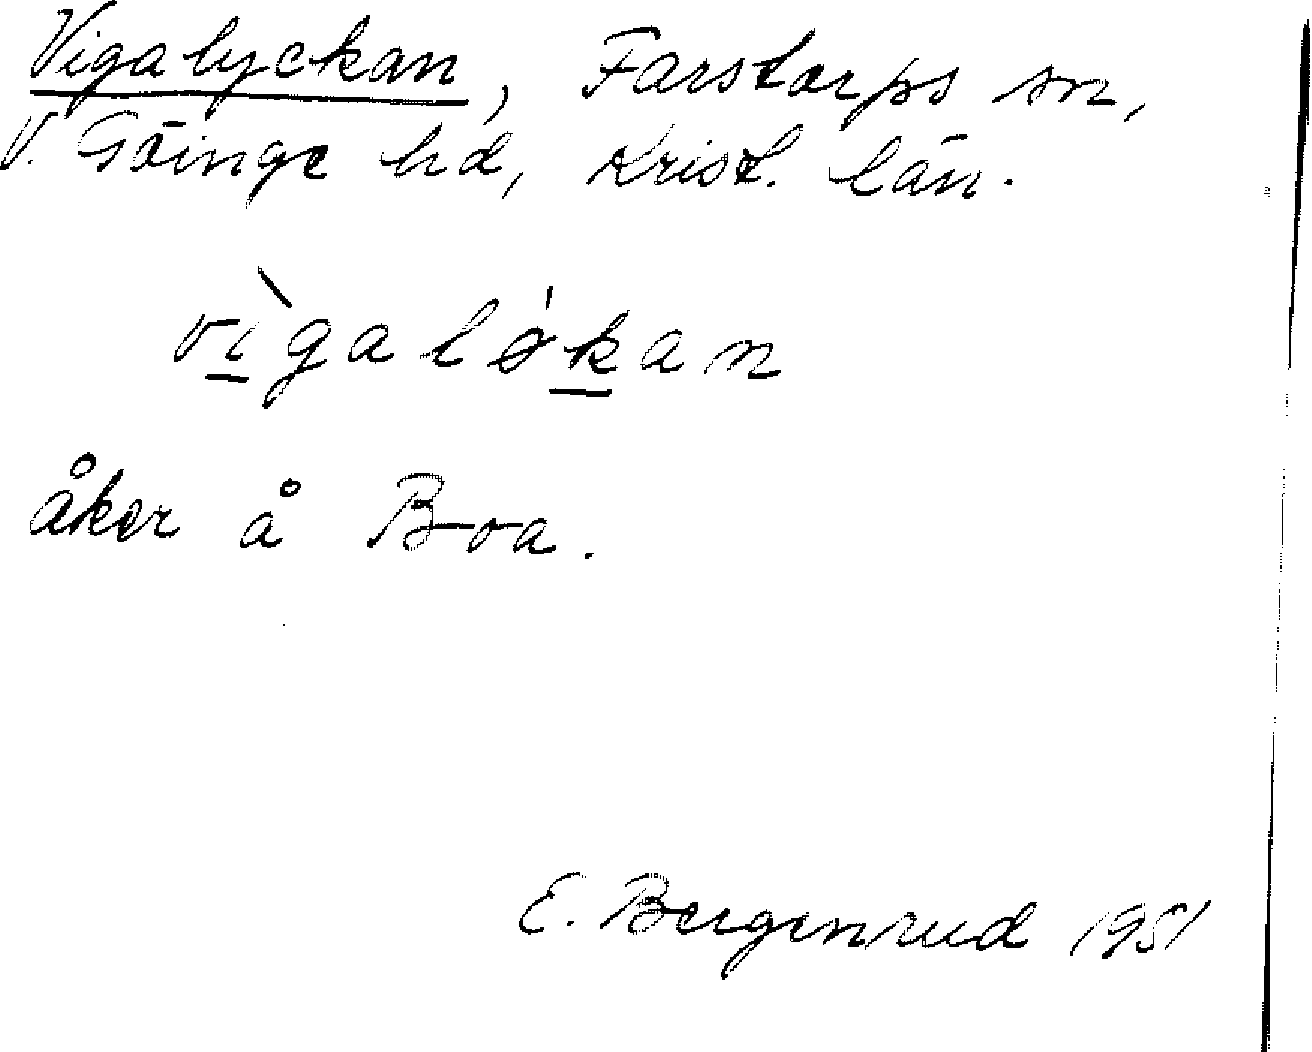 Vigalyckan, Farstorps sn,
V. Göinge hd, Krist. län.
vìgalǿkan
åker å Boa.
E. Bergenrud 1951